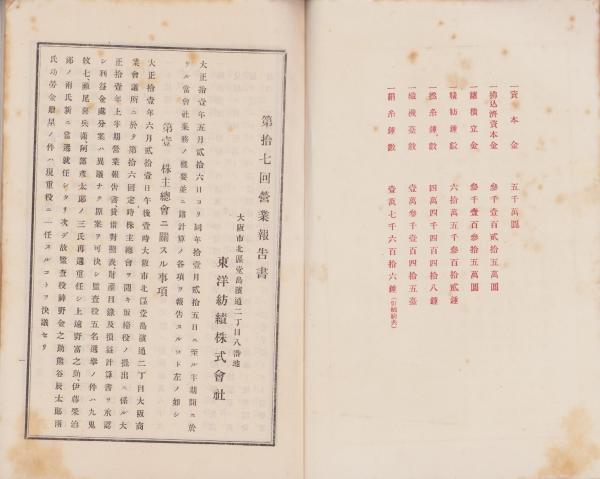 一資本金　五千萬圓
一拂込濟資本金　參千壹百貳拾五萬圓
一諸積立金　參千壹百參拾五萬圓
一精紡錘數　六拾萬五千參百貳錘
一撚糸錘數　四萬四千四百四拾八錘
一織機臺數　壹萬參千壹百四拾五臺
一絹糸錘數　壹萬七千六百拾六錘
第拾七回營業報告書
大阪市北區堂島濱通二丁目八番地
東洋紡績株式會社
大正拾壹年五月貳拾六日ヨリ同年拾壹月貳拾五日ニ至ル半期間ニ於
ケル當會社業務ノ概要並ニ諸計算ノ各項ヲ報告スルコト左ノ如シ
第壹　株主總會ニ關スル事項
大正拾壹年六月貳拾壹日午後壹時大阪市北區堂島濱通二丁目大阪商
業會議所ニ於テ第拾六回定時株主總會ヲ開キ取締役ノ提出ニ係ル大
正拾壹年上半期營業報告書、貸借對照表、財產目錄及損益計算書ヲ承認
シ利益金處分案ハ異議ナク原案ヲ可決シ監査役五名選擧ノ件ハ九鬼
紋七、瀧尾喜兵衛、阿部彥太郎ノ三氏再選重任シ上遠野富之助、伊藤榮治
郎ノ兩氏新ニ當選就任シタリ次デ故監査役神野金之助、熊谷辰太郎兩
氏功勞金慰勞ノ件ハ現重役ニ一任スルコトヲ決議セリ
一